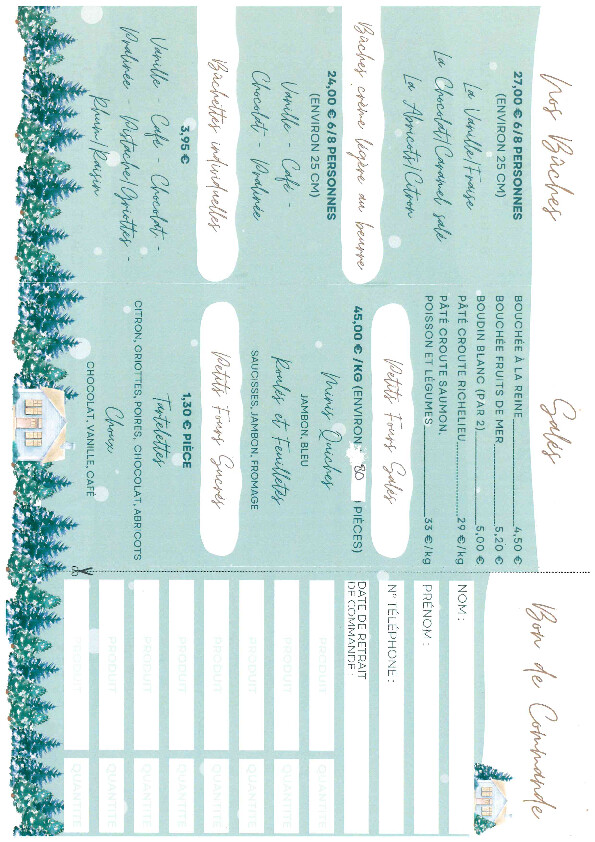 Nos Bûches
27,00 € 6/8 PERSONNES
(ENVIRON 25 CM)
La Vanille/Fraise
La Chocolat/Caramel salé
La Abricots/Citron
Bûches crème légère au beurre
24,00 € 6/8 PERSONNES
(ENVIRON 25 CM)
Vanille - Café -
Chocolat - Pralinée
Bûchettes individuelles
3,95 €
Vanille - Café - Chocolat -
Pralinée - Pistache/Griottes -
Rhum/Raisin
Salés
BOUCHÉE À LA REINE 4,50 €
BOUCHÉE FRUITS DE MER 5,20 €
BOUDIN BLANC (PAR 2) 5,00 €
PÂTÉ CROUTE RICHELIEU 29 €/kg
PÂTÉ CROUTE SAUMON,
POISSON ET LÉGUMES 33 €/kg
Petits Fours Salés
45,00 € /KG (ENVIRON 80 PIÈCES)
Minis Quiches
JAMBON, BLEU
Roulés et Feuilletés
SAUCISSES, JAMBON, FROMAGE
Petits Fours Sucrés
1,30 € PIÈCE
Tartelettes
CITRON, GRIOTTES, POIRES, CHOCOLAT, ABRICOTS
Choux
CHOCOLAT, VANILLE, CAFÉ
Bon de Commande
NOM :
PRÉNOM :
N° TÉLÉPHONE :
DATE DE RETRAIT
DE COMMANDE :
PRODUIT QUANTITÉ
PRODUIT QUANTITÉ
PRODUIT QUANTITÉ
PRODUIT QUANTITÉ
PRODUIT QUANTITÉ
PRODUIT QUANTITÉ
PRODUIT QUANTITÉ
PRODUIT QUANTITÉ